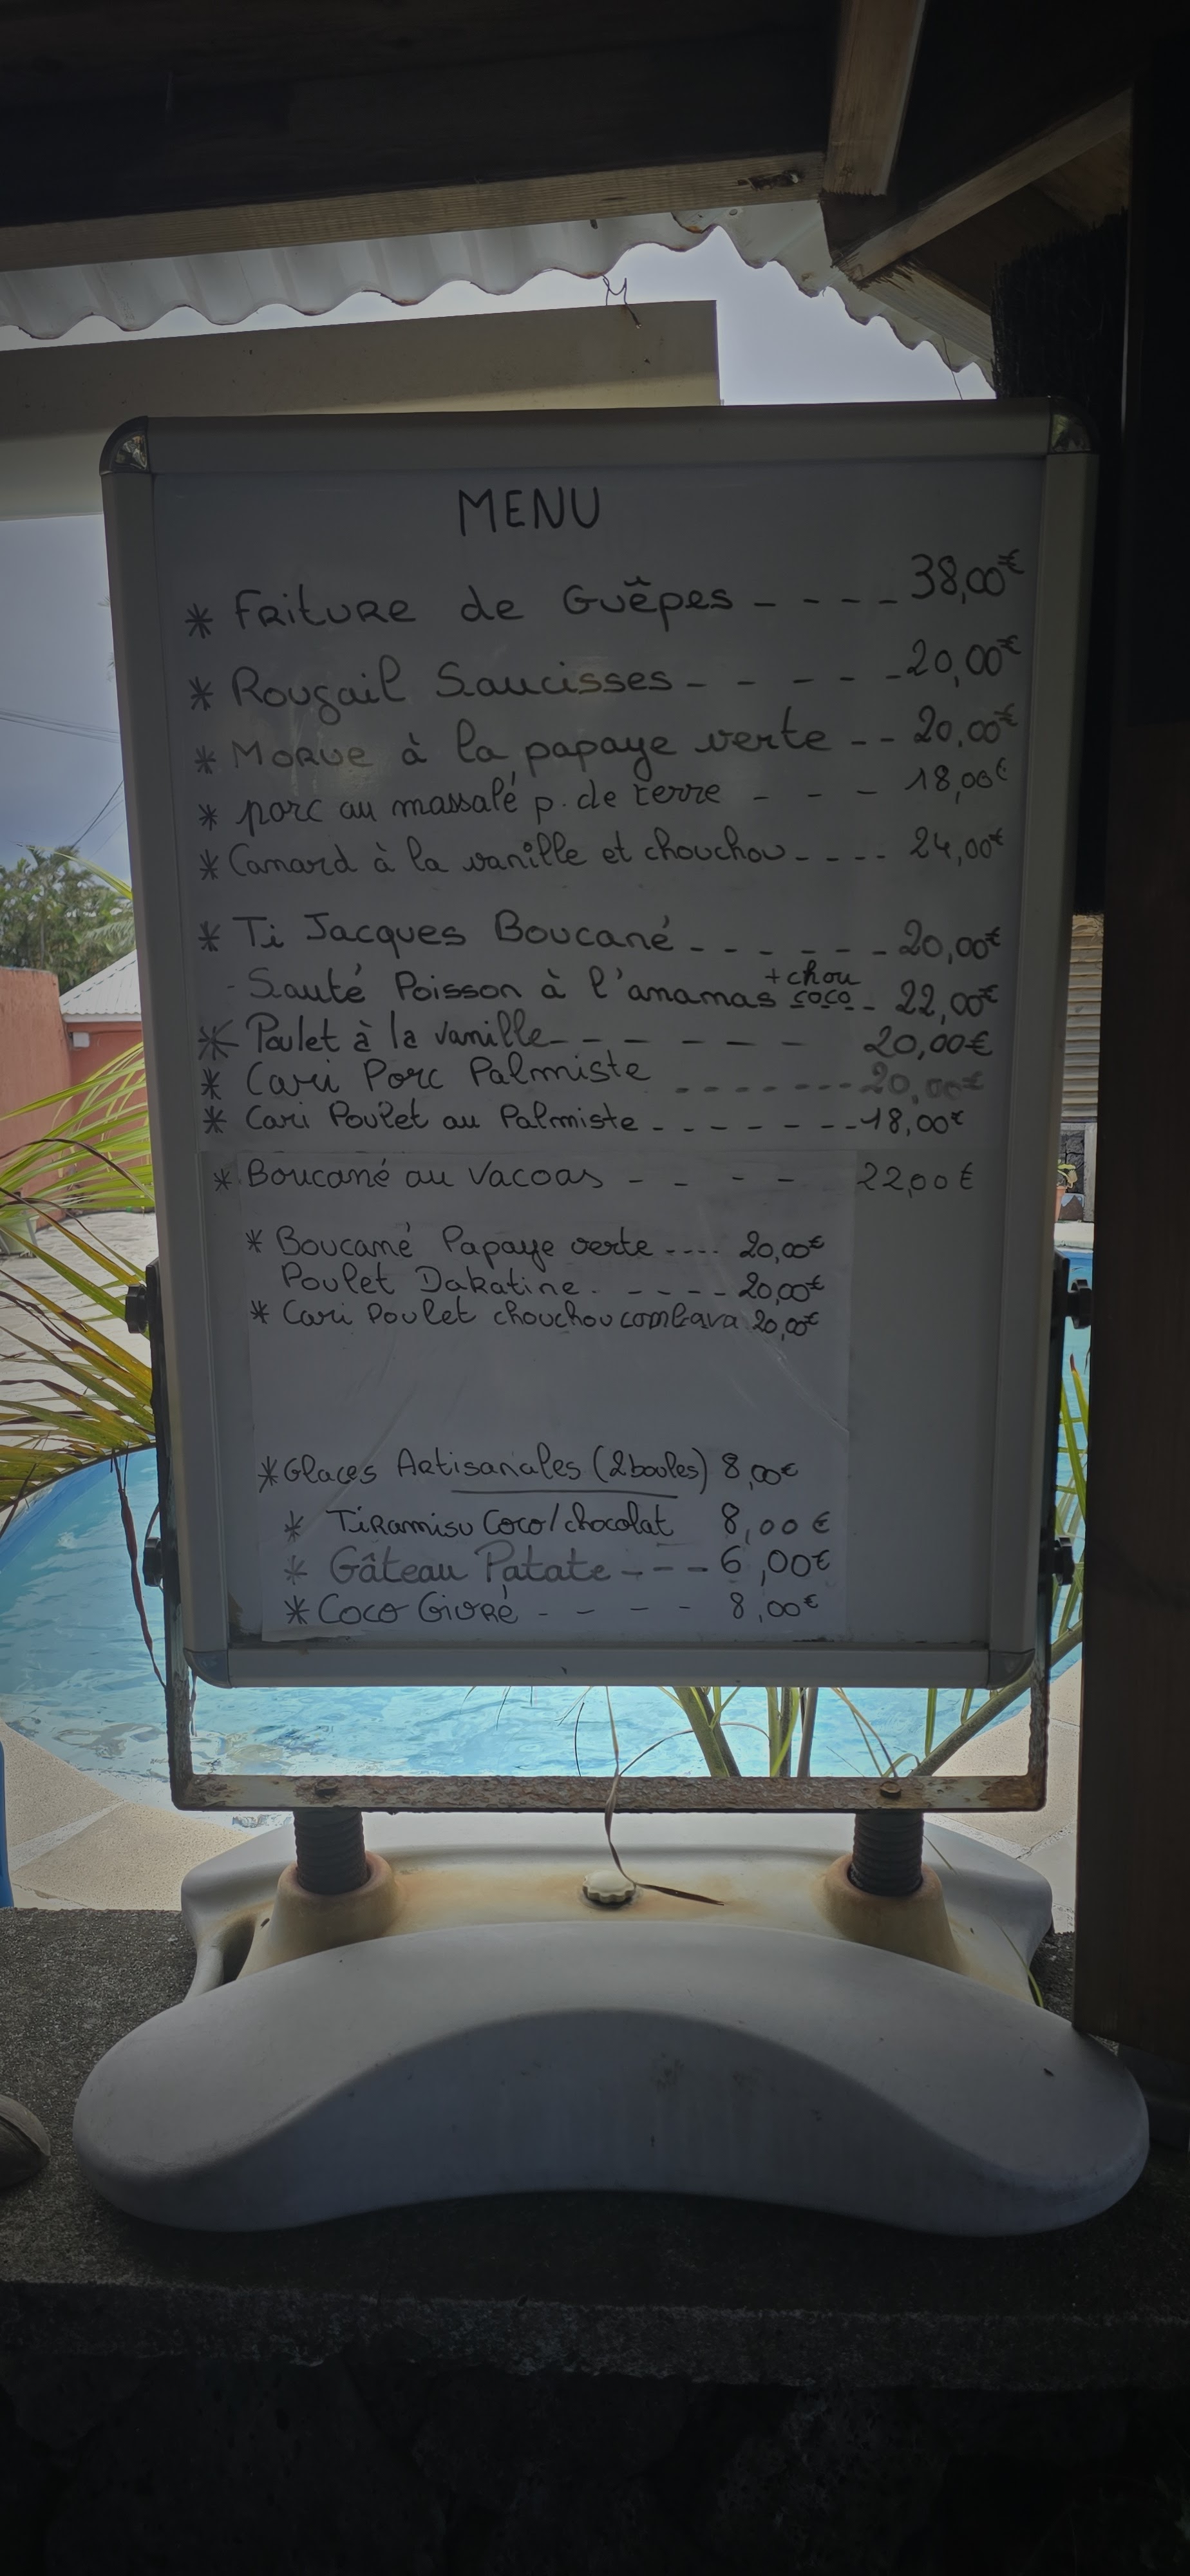 MENU
* Friture de Guêpes - - - - 38,00€
* Rougail Saucisses - - - - - 20,00€
* Morue à la papaye verte - - 20,00€
* porc au massalé p. de terre - - - 18,00€
* Canard à la vanille et chouchou - - - - 24,00€
* Ti Jacques Boucané - - - - - - 20,00€
- Sauté Poisson à l'ananas + chou coco - 22,00€
* Poulet à la vanille - - - - - - 20,00€
* Cari Porc Palmiste - - - - - - - 20,00€
* Cari Poulet au Palmiste - - - - - - - 18,00€
* Boucané au Vacoas - - - - 22,00€
* Boucané Papaye verte - - - - 20,00€
Poulet Dakatine - - - - - 20,00€
* Cari Poulet chouchou combava 20,00€
* Glaces Artisanales (2 boules) 8,00€
* Tiramisu Coco/chocolat 8,00€
* Gâteau Patate - - - 6,00€
* Coco Givré - - - - 8,00€